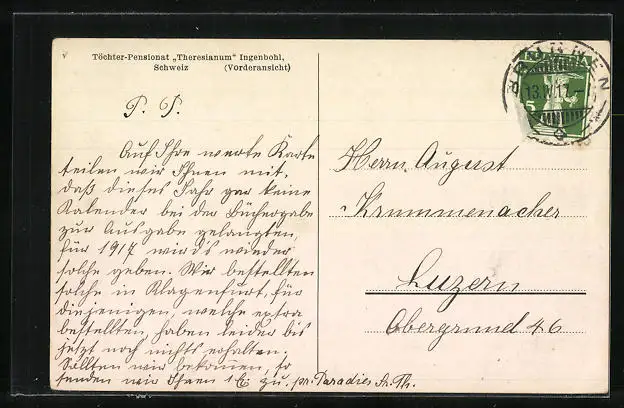 Töchter-Pensionat „Theresianum" Ingenbohl,
Schweiz (Vorderansicht)
P. P.
Auf Ihre werte Karte
teilen wir Ihnen mit,
daß dieses Jahr gar keine
Kalender bei der Büchergabe
zur Ausgabe gelangten,
für 1917 wird's wieder
solche geben. Wir bestellten
solche in Klagenfurt, für
diejenigen, welche extra
bestellten, haben leider bis
jetzt noch nichts erhalten.
Sollten wir bekommen, so
senden wir Ihnen 1 zu. pr. Paradies Sr. Th.
BRUNNEN
13.IV.17.
5
Herrn August
Krummenacher
Luzern
Obergrund 46